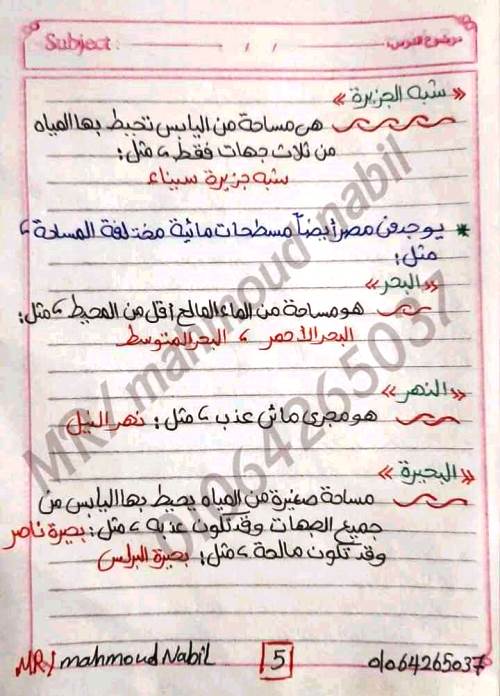 Subject : / / موضوع الدرس:
« شبه الجزيرة »
هى مساحة من اليابس تحيط بها المياه
من ثلاث جهات فقط ، مثل :
شبه جزيرة سيناء
* يوجد فى مصر أيضاً مسطحات مائية مختلفة المساحة ،
مثل :
« البحر »
هو مساحة من الماء المالح أقل من المحيط ، مثل :
البحر الأحمر ، البحر المتوسط
« النهر »
هو مجرى مائى عذب ، مثل : نهر النيل
« البحيرة »
مساحة صغيرة من المياه يحيط بها اليابس من
جميع الجهات وقد تكون عذبه ، مثل : بحيرة ناصر
وقد تكون مالحة ، مثل : بحيرة البرلس
MR/ mahmoud nabil
01064265037
MR/ mahmoud Nabil 5 01064265037